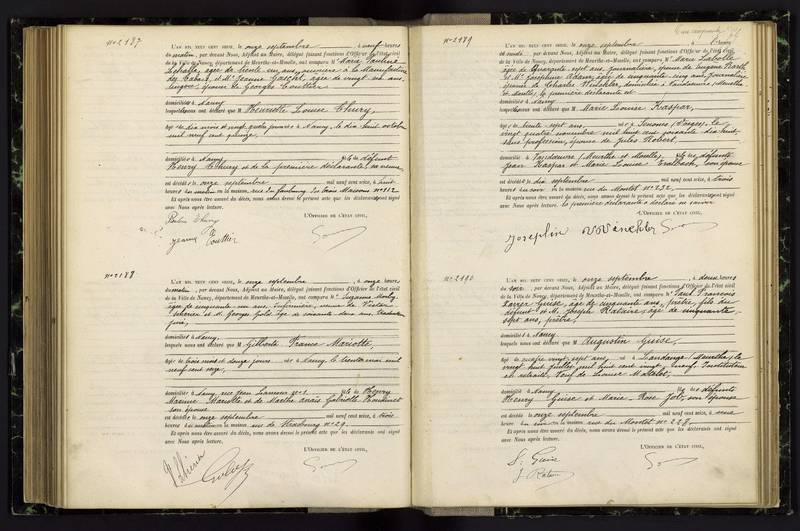 N° 2187
L'AN MIL NEUF CENT SEIZE, le onze septembre, à neuf heures
du matin, par devant Nous, Adjoint au Maire, délégué faisant fonctions d'Officier de l'état civil
de la Ville de Nancy, département de Meurthe-et-Moselle, ont comparu M Maria Pauline
âgée de trente un ans, ouvrière à la Manufacture
des Tabacs et M Jeanne âgée de vingt six ans
lingère, épouse de Georges
domiciliés à Nancy
lesquelles nous ont déclaré que M Henriette Louise Thiry,
âgée de dix mois et vingt quatre jours née à Nancy, le dix huit octobre
mil neuf cent quinze,
domiciliée à Nancy fille de défunt
Henry Thiry et de la première déclarante, sa veuve
est décédée le onze septembre mil neuf cent seize, à huit
heures du matin en la maison rue du faubourg des trois Maisons n° 112
Et après nous être assuré du décès, nous avons dressé le présent acte que les déclarants ont signé
avec Nous après lecture.
L'OFFICIER DE L'ÉTAT CIVIL,
Thiry
Jeanne
N° 2188
L'AN MIL NEUF CENT SEIZE, le onze septembre, à onze heures
du matin, par devant Nous, Adjoint au Maire, délégué faisant fonctions d'Officier de l'état civil
de la Ville de Nancy, département de Meurthe-et-Moselle, ont comparu M Suzanne
âgée de cinquante un ans, infirmière, veuve de Victor
et M. Georges âgé de soixante dix ans,
domiciliés à Nancy,
lesquels nous ont déclaré que M Gilberte France Mariotte,
âgée de trois mois et douze jours née à Nancy, le trente mai mil
neuf cent seize,
domiciliée à Nancy, rue n° 1 fille de Henry
Mariotte et de Marthe Anaïs Gabrielle
son épouse
est décédée le onze septembre mil neuf cent seize, à trois
heures du matin en la maison rue de Strasbourg n° 29.
Et après nous être assuré du décès, nous avons dressé le présent acte que les déclarants ont signé
avec Nous après lecture.
L'OFFICIER DE L'ÉTAT CIVIL,
N° 2189
L'AN MIL NEUF CENT SEIZE, le onze septembre, à onze heures
et demie, par devant Nous, Adjoint au Maire, délégué faisant fonctions d'Officier de l'état civil
de la Ville de Nancy, département de Meurthe-et-Moselle, ont comparu M Marie Labolle
âgée de quarante sept ans, journalière, épouse de Eugène
et M Joséphine Adam, âgée de cinquante cinq ans, journalière
épouse de Charles domiciliée à Vandœuvre (Meurthe
et Moselle), la première déclarante et
domiciliée à Nancy
lesquelles nous ont déclaré que M Marie Louise Kaspar,
âgée de trente sept ans, née à Senones (Vosges), le
vingt quatre novembre mil huit cent soixante dix huit
sans profession, épouse de Jules Robert,
domiciliée à Vandœuvre (Meurthe et Moselle), fille des défunts
Jean Kaspar et Marie Louise son épouse
est décédée le dix septembre mil neuf cent seize, à trois
heures du soir en la maison rue du Montet N° 232,
Et après nous être assuré du décès, nous avons dressé le présent acte que les déclarants ont signé
avec Nous après lecture. la première déclarante a déclaré ne savoir
L'OFFICIER DE L'ÉTAT CIVIL,
N° 2190
L'AN MIL NEUF CENT SEIZE, le onze septembre, à deux heures
du soir, par devant Nous, Adjoint au Maire, délégué faisant fonctions d'Officier de l'état civil
de la Ville de Nancy, département de Meurthe-et-Moselle, ont comparu M Paul François
Guise, âgé de cinquante ans, prêtre, fils du
défunt et M. Joseph Rataire, âgé de cinquante
sept ans, prêtre,
domiciliés à Nancy
lesquels nous ont déclaré que M Augustin Guise,
âgé de quatre vingt sept ans, né à Landange (Meurthe), le
vingt huit juillet mil huit cent vingt neuf, Instituteur
en retraite, Veuf de Louise
domicilié à Nancy fils des défunts
Henry Guise et Marie Rose son épouse
est décédé le onze septembre mil neuf cent seize, à une
heure en la maison rue du Montet n° 228,
Et après nous être assuré du décès, nous avons dressé le présent acte que les déclarants ont signé
avec Nous après lecture.
L'OFFICIER DE L'ÉTAT CIVIL,
Guise